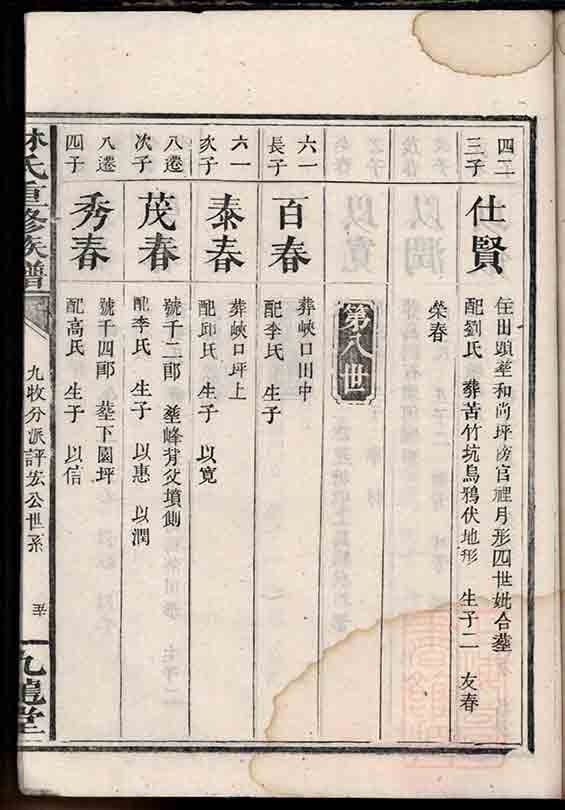 四二
三子
仕賢
住田頭塟和尚坪傍官裡月形四世妣合塟
配劉氏 葬苦竹坑烏鴉伏地形 生子二 友春
榮春
第八世
六一
長子
百春
葬峽口田中
配李氏 生子
六一
次子
泰春
葬峽口坪上
配邱氏 生子 以寬
八遷
次子
茂春
號千二郎 塟峰背父墳側
配李氏 生子 以惠 以潤
八遷
四子
秀春
號千四郎 塟下園坪
配高氏 生子 以信
林氏重修族譜
九牧分派評宏公世系
九龍堂